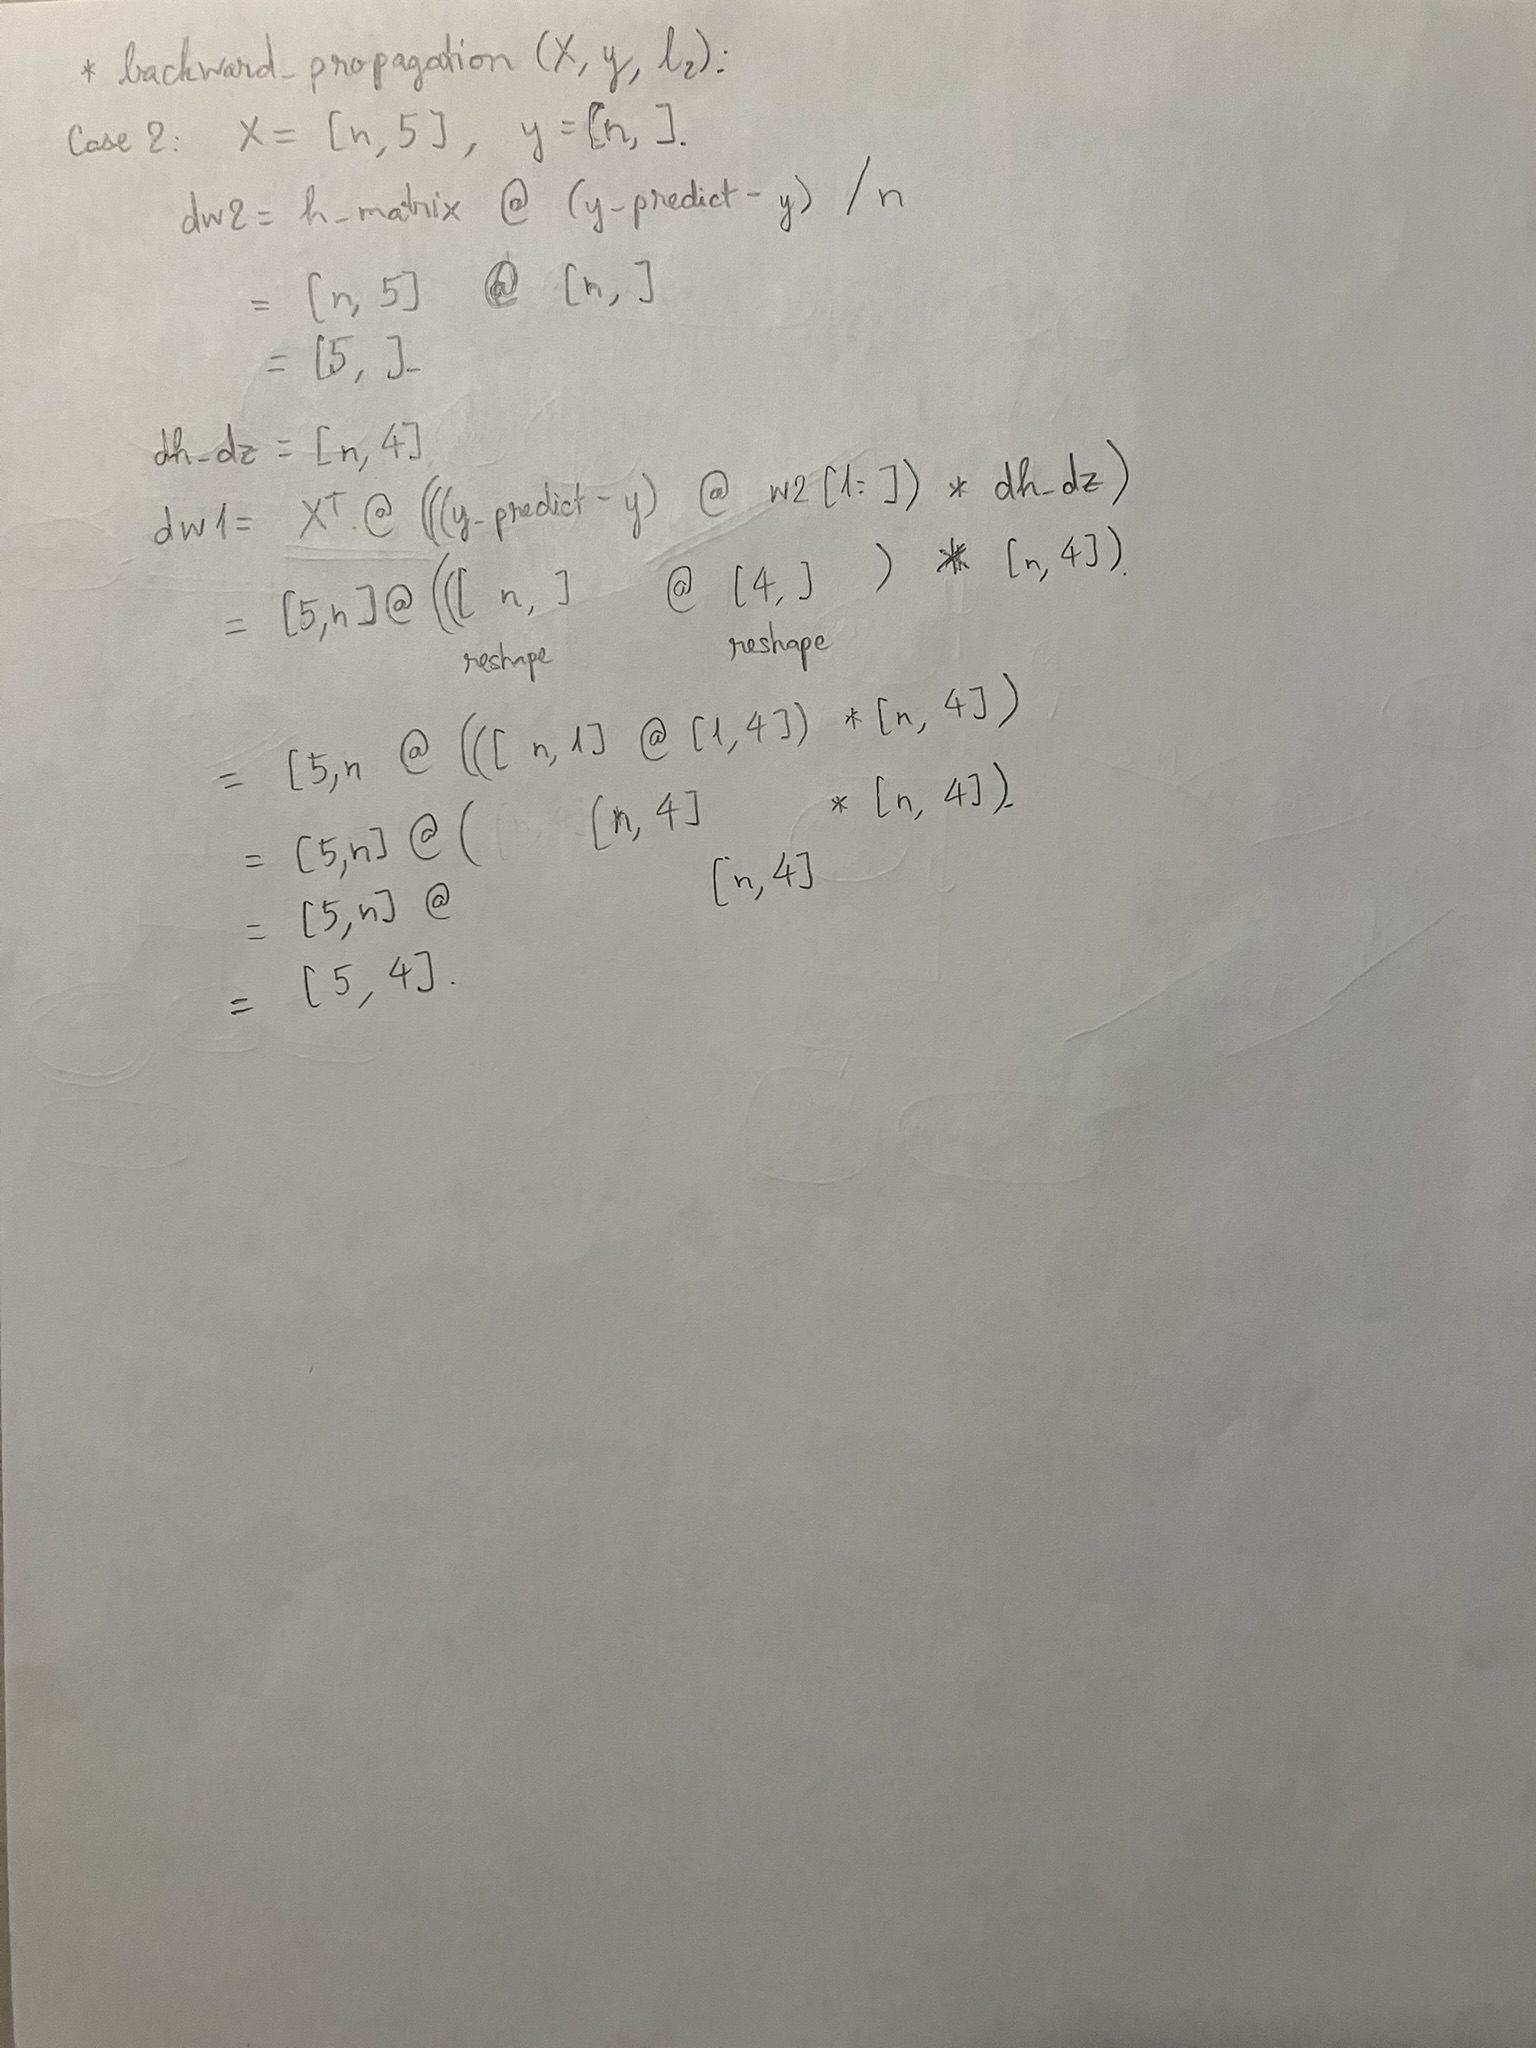 * backward_propagation (X, y, l₂):
Case 2: X = [n, 5], y = [n, ].
dw2 = h_matrix @ (y_predict - y) / n
= [n, 5] @ [n, ]
= [5, ].
dh_dz = [n, 4]
dw1 = Xᵀ @ (((y_predict - y) @ w2 [1: ]) * dh_dz)
= [5,n] @ (([ n, ] @ [4, ] ) * [n, 4]).
reshape reshape
= [5,n @ (([ n, 1] @ [1, 4]) * [n, 4])
= [5,n] @ ( [n, 4] * [n, 4]).
= [5,n] @ [n, 4]
= [5, 4].